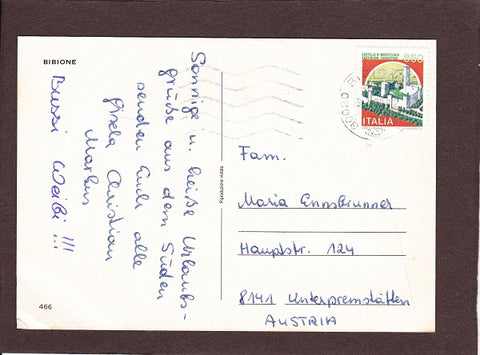 BIBIONE
Sonnige u. heiße Urlaubs-
grüße aus dem Süden
senden Euch alle
Gisela Christian
Markus
Bussi Weibi !!!
466
Riproduzione vietata
850
CASTELLO DI MONTECCHIO
CASTIGLION FIORENTINO
ITALIA
30020
Fam.
Maria Ennsbrunner
Hauptstr. 124
8141 Unterpremstätten
AUSTRIA